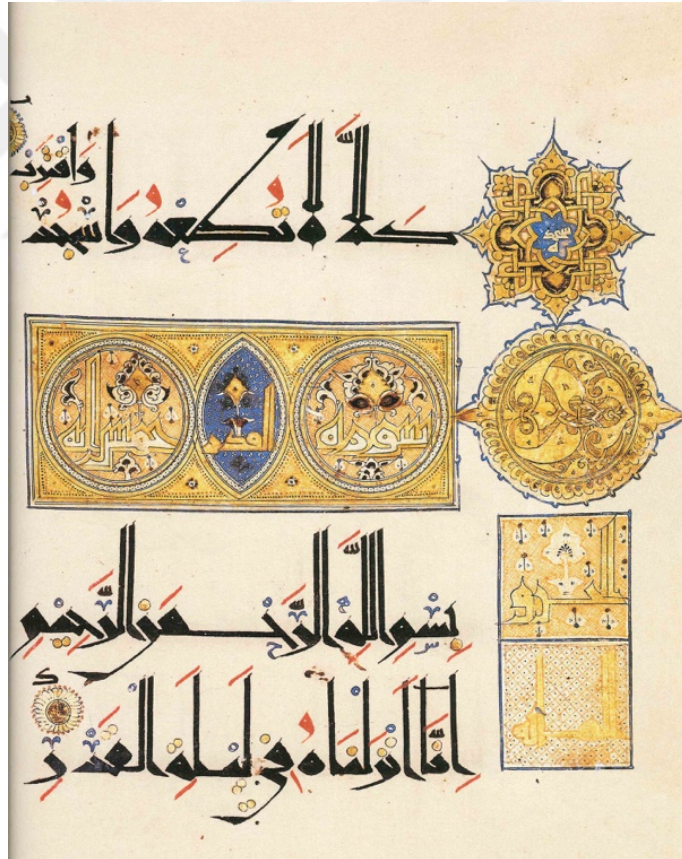 كَلَّا لَا تُطِعْهُ وَاسْجُدْ وَاقْتَرِب
سجدة
سورة القدر خمس ايه
بِسْمِ اللَّهِ الرَّحْمَنِ الرَّحِيمِ
إِنَّا أَنْزَلْنَاهُ فِي لَيْلَةِ الْقَدْرِ